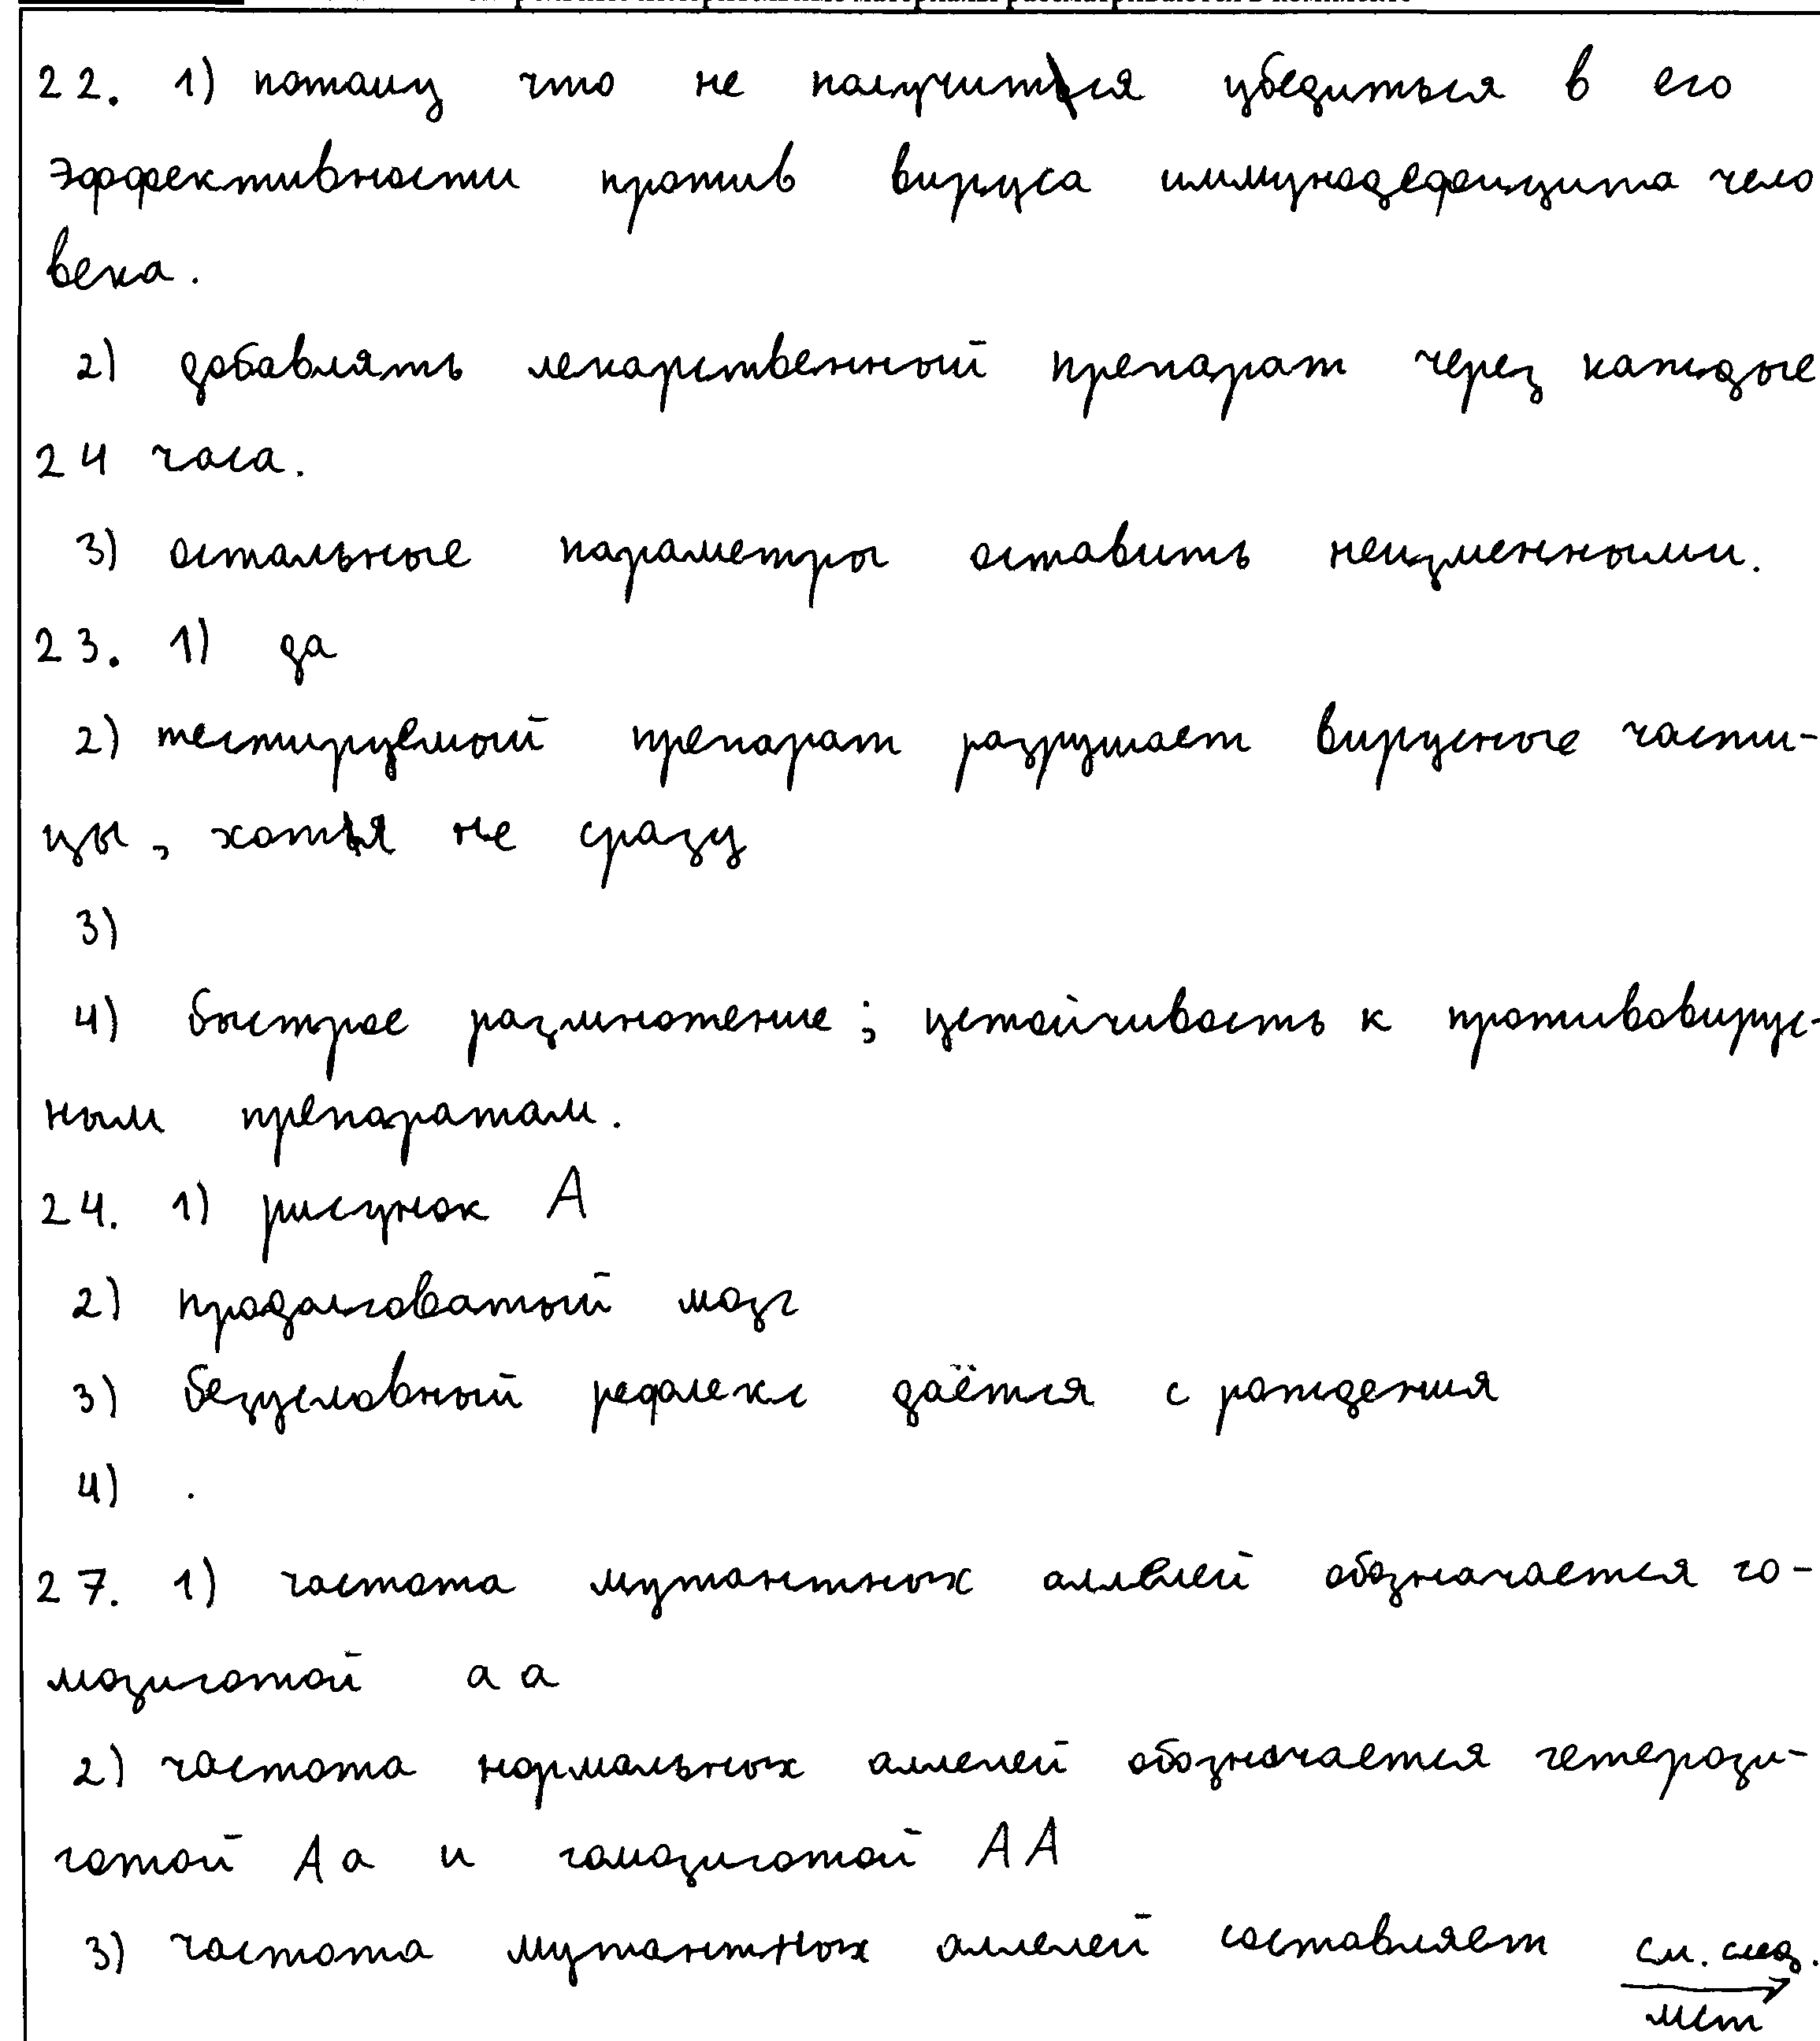 22. 1) потому что не получится убедиться в его
эффективности против вируса иммунодефицита чело
века.
2) добавлять лекарственный препарат через каждые
24 часа.
3) остальные параметры оставить неизменными.
23. 1) да
2) тестируемый препарат разрушает вирусные части-
цы, хотя не сразу
3)
4) быстрое размножение; устойчивость к противовирус-
ным препаратам.
24. 1) рисунок А
2) продолговатый мозг
3) безусловный рефлекс даётся с рождения
4) .
27. 1) частота мутантных аллелей обозначается го-
мозиготой аа
2) частота нормальных аллелей обозначается гетерози-
готой Аа и гомозиготой АА
3) частота мутантных аллелей составляет см. след.
лист